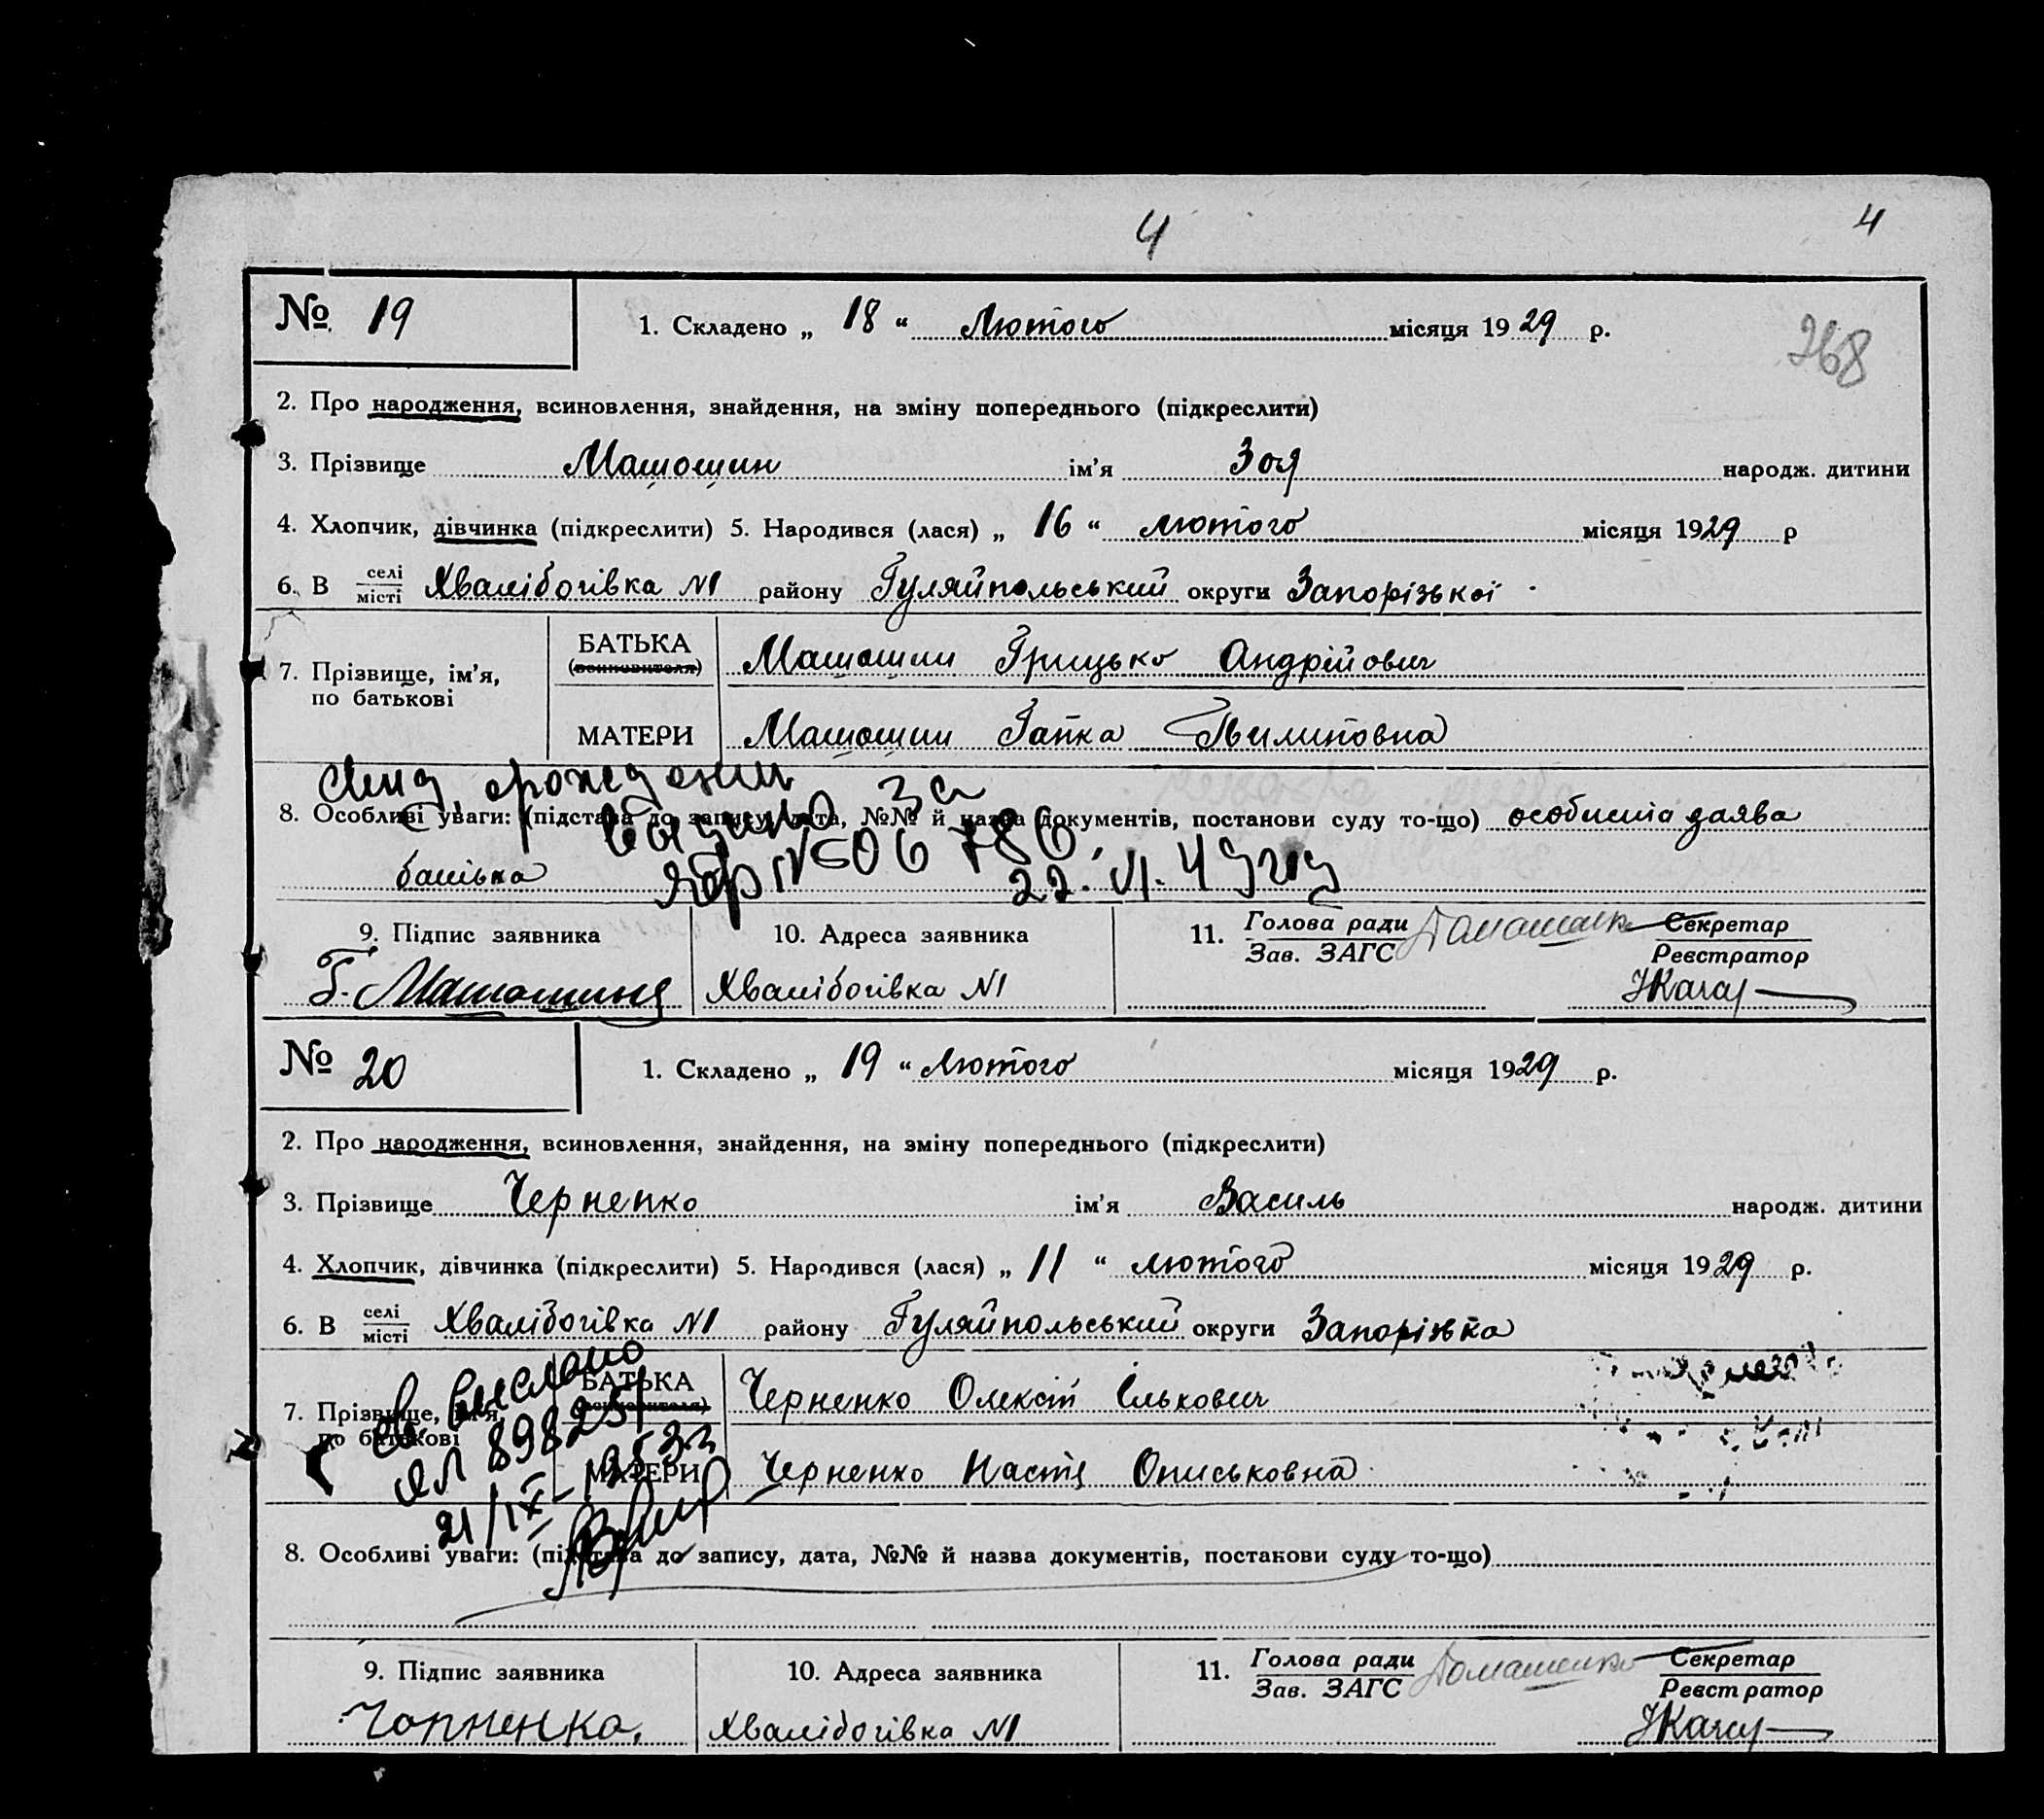 4
4
№ 19
1. Складено „ 18 “ Лютого місяця 1929 р.
268
2. Про народження, всиновлення, знайдення, на зміну попереднього (підкреслити)
3. Прізвище Машошин ім’я Зоя народж. дитини
4. Хлопчик, дівчинка (підкреслити) 5. Народився (лася) „ 16 “ лютого місяця 1929 р
6. В селі місті Хвалібогівка №1 району Гуляйпольський округи Запорізької
7. Прізвище, ім’я, по батькові
БАТЬКА (всиновителя) Машошин Грицько Андрійович
МАТЕРИ Машошин Гапка Пилиповна
8. Особливі уваги: (підстава до запису, дата, №№ й назва документів, постанови суду то-що) особиста заява
батька
за
22. VI. 49
9. Підпис заявника
10. Адреса заявника
11. Голова ради Зав. ЗАГС Домашенко Секретар Реєстратор
Г. Машошина
Хвалібогівка №1
№ 20
1. Складено „ 19 “ Лютого місяця 1929 р.
2. Про народження, всиновлення, знайдення, на зміну попереднього (підкреслити)
3. Прізвище Черненко ім’я Василь народж. дитини
4. Хлопчик, дівчинка (підкреслити) 5. Народився (лася) „ 11 “ лютого місяця 1929 р.
6. В селі місті Хвалібогівка №1 району Гуляйпольський округи Запорізька
7. Прізвище, ім’я, по батькові
БАТЬКА (всиновителя) Черненко Олексій Ількович
МАТЕРИ Черненко Настя Описьковна
св. выслано
ЯЛ 898251
21/IX-1953г
8. Особливі уваги: (підстава до запису, дата, №№ й назва документів, постанови суду то-що)
9. Підпис заявника
10. Адреса заявника
11. Голова ради Зав. ЗАГС Домашенко Секретар Реєстратор
Чорненко.
Хвалібогівка №1